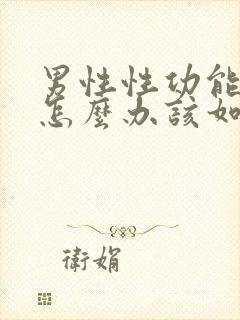 男性性功能
怎麼办該如
衛娟